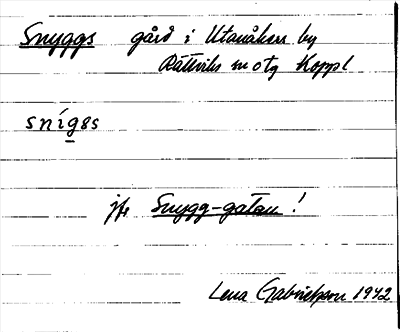 Snyggs gård i Utanåkers by
Rättviks sn o tg Koppl
snígss
jfr Snygg-gatan!
Lena Gabrielsson 1942